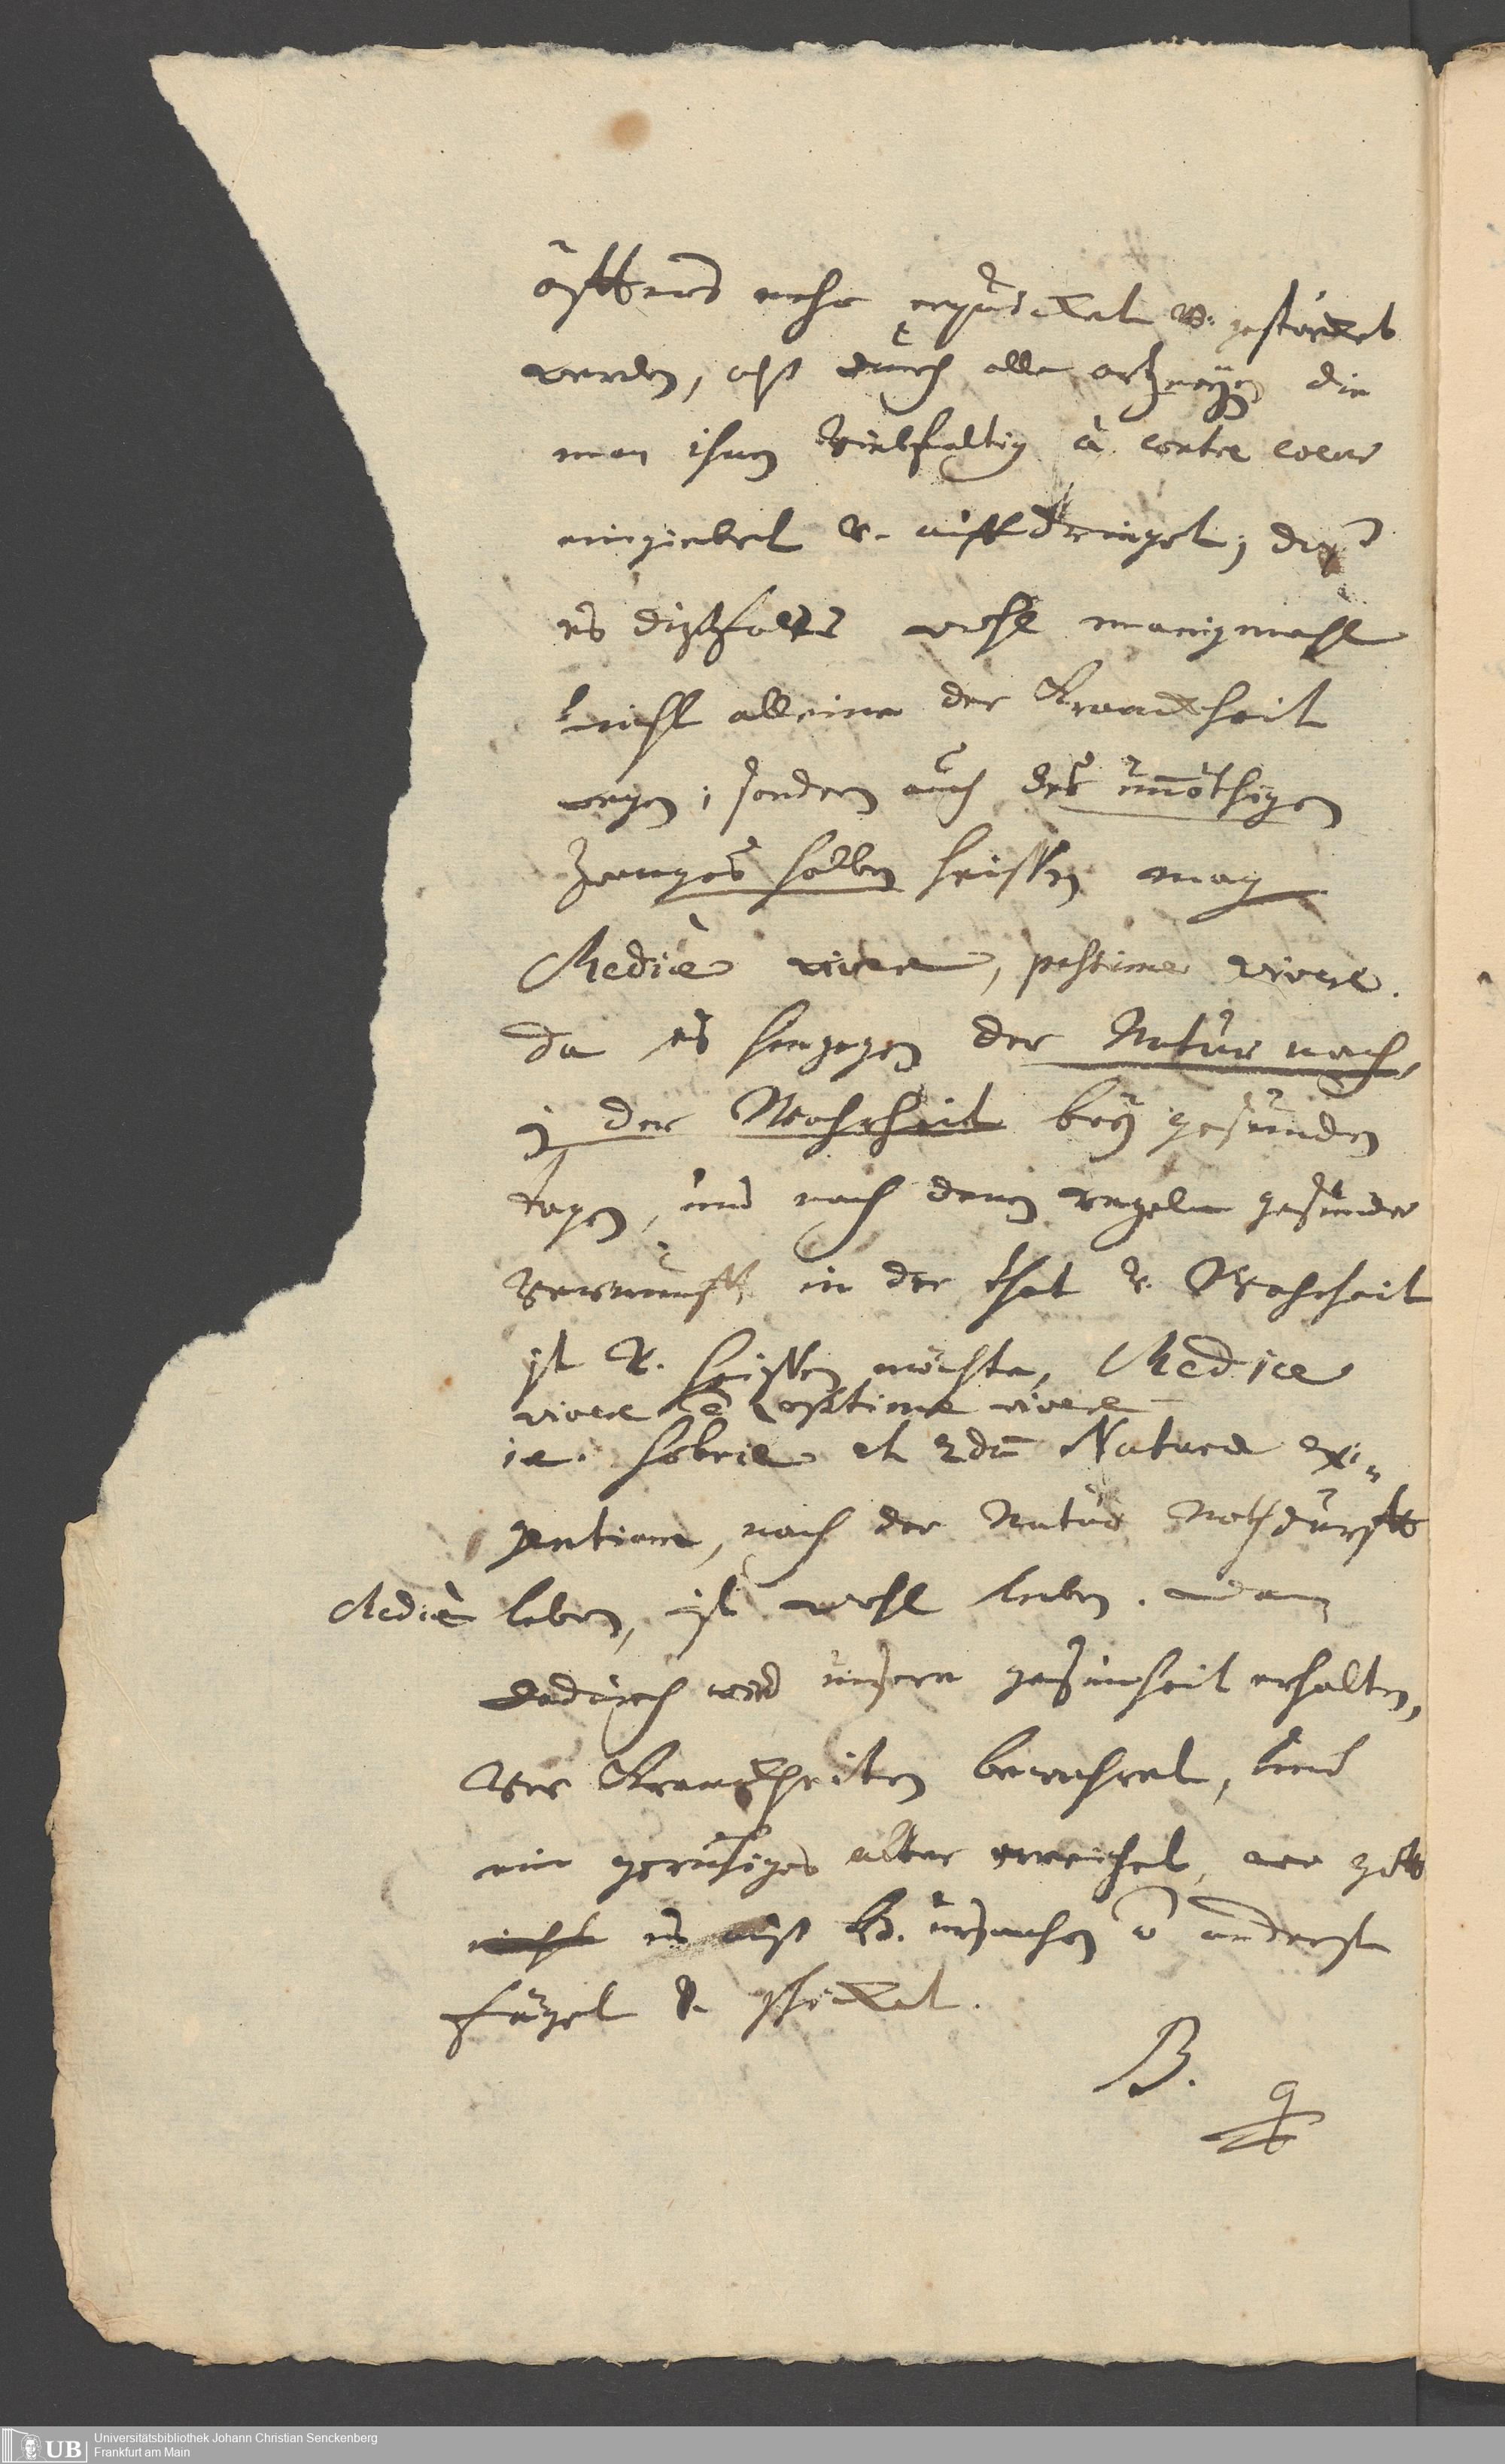 öffters mehr erquicket v. gestärcket
werden, alß durch alle artzneyen die
man ihnen vielfaltig à contre coeur
eingiebet v. auffdringet, daß
es dißfalls wohl manigmahl
nicht alleine der Kranckheit
wegen; sondern auch deß unnöthigen
Zwanges halben heissen mag
Medicè vivere, pessime vivere.
da es hergegen der Natur nach,
in der Wahrheit bey gesunden
tagen, und nach denen regeln gesunder
Vernunfft, in der that v. Wahrheit
ist v. heissen möchte, Medice
vivere e optime vivere
i.e. sobrie et 2dũ Naturæ exi-
gentiam, nach der Natur Nothdurfft
Medicè leben, ist wohl leben. dann
dadurch wird unsere gesundheit erhalten,
Vor Kranckheiten bewahret, und
ein geruhiges alter erreichet, wo gott
nicht es auß hh. ursachen anderst
füget v. schicket.
B.